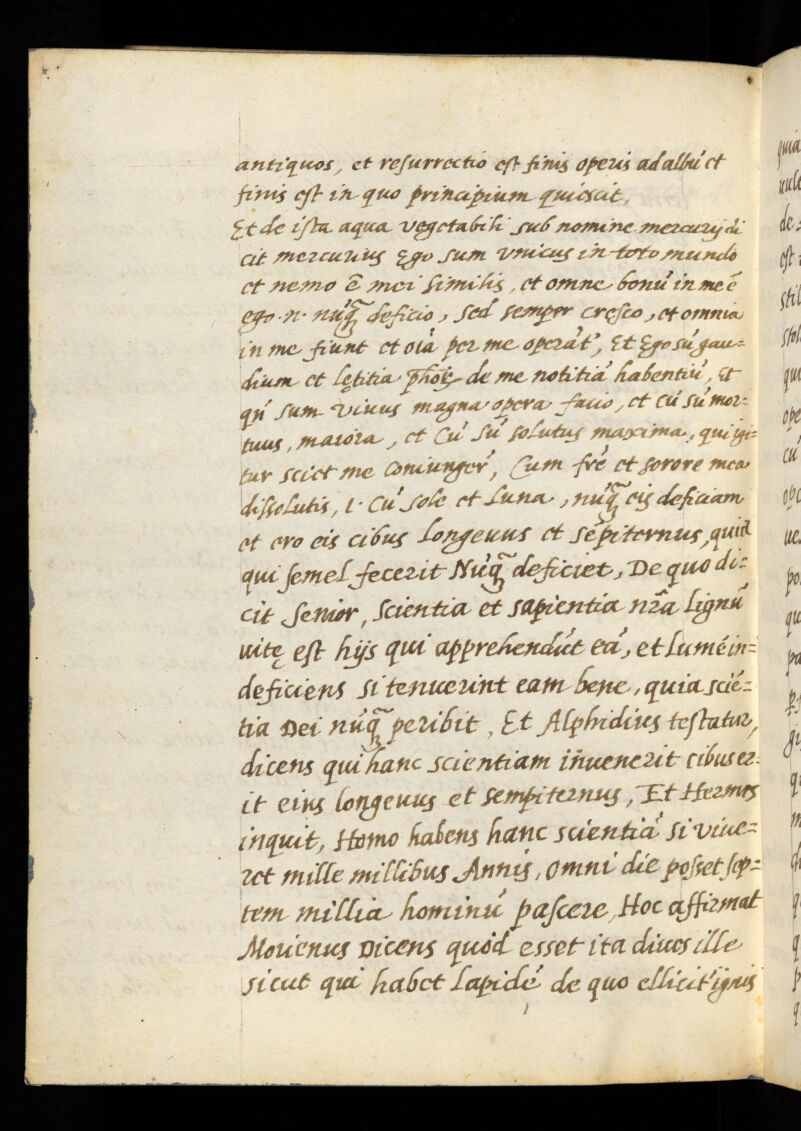 antiquos, et resurrectio est finis operis ad albū et
finis est in quo principium quiescit.
Et de ista aqua vegetabili sub nomine mercurij di
cit mercurius Ego sum vnicus in toto mundo
et nemo ē mei similis, et omne bonū in me ē
ego .n. nūq̃ deficio, sed semper cresco, et omnia
in me fiunt et oīa per me operāt', Et Ego sū gau=
dium et lętitia de me notitiā habentiū, Et
qñ sum vivus magna opera facio, et cū sū mor=
tuus, maiora, et Cū sū solutus maxima, qui igi=
tur sciet me coniungeř, Cum frē et sorore mea
dissolutis, i. Cū sole et Luna, nūq̃ eis deficiam
et ero eis cibus longeuus et sēpiternus, quia
qui semel fecerit Nūq̃ deficiet, De quo di=
cit Senior, Scientia et sapientia nr̃a Lignū
uitę est hijs qui apprehendūt eā, et Lumē in=
deficiens si tenuerint eam bene, quia sciē=
tia Dei nūq̃ peribit, Et Alphidius testatur,
dicens qui hanc scientiam inuenerit cibus er=
it eius longeuus et sempiternus, Et Hermes
inquit, Homo habens hanc scientiā si viue=
ret mille millibus Annis, omni die posset sep=
tem millia hominū pascere, Hoc affirmat
Morienus Dicens quod esset ita diues ille
sicut qui habet Lapidē de quo ellicit' ignis